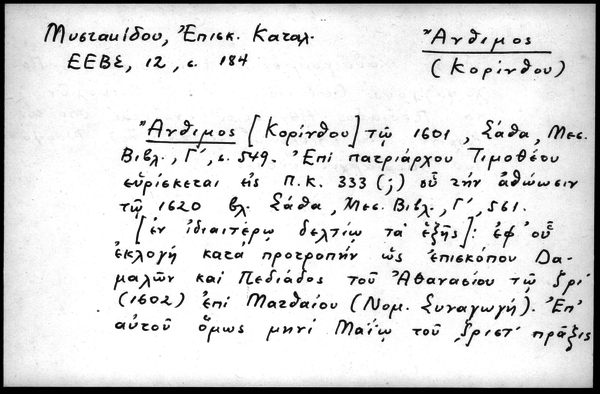 Μυστακίδου, Ἐπισκ. Καταλ.
ΕΕΒΣ, 12, σ. 184
Ἄνθιμος
(Κορίνθου)
Ἄνθιμος [Κορίνθου] τῷ 1601, Σάθα, Μεσ.
Βιβλ., Γ', σ. 549. Ἐπὶ πατριάρχου Τιμοθέου
εὑρίσκεται εἰς Π.Κ. 333 (;) οὗ τὴν ἀθώωσιν
τῷ 1620 βλ. Σάθα, Μεσ. Βιβλ., Γ', 561.
[ἐν ἰδιαιτέρῳ δελτίῳ τὰ ἑξῆς]: ἐφ' οὗ
ἐκλογή κατὰ προτροπὴν ὡς ἐπισκόπου Δα-
μαλῶν καὶ Πεδιάδος τοῦ Ἀθανασίου τῷ ζρι'
(1602) ἐπὶ Ματθαίου (Νομ. Συναγωγή). Ἐπ'
αὐτοῦ ὅμως μηνὶ Μαΐῳ τοῦ ζριστ' πρᾶξις